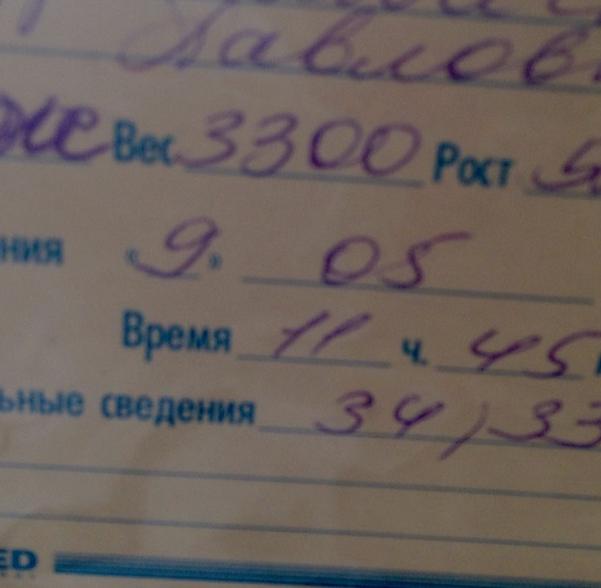 Павлов
Вес 3300 Рост
ния «9» 05
Время 11 ч. 45
ьные сведения 34/33
ED